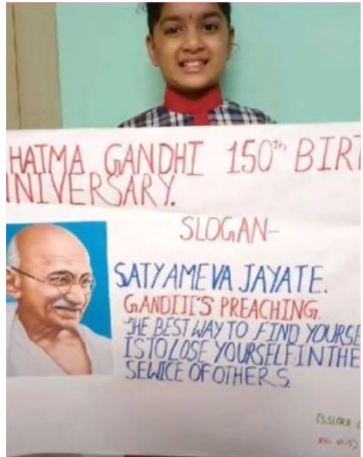 HATMA GANDHI 150th BIRT
NNIVERSARY.
SLOGAN-
SATYAMEVA JAYATE.
GANDIJI'S PREACHING.
THE BEST WAY TO FIND YOURSE
IS TO LOSE YOURSELF IN THE
SEWICE OF OTHERS.